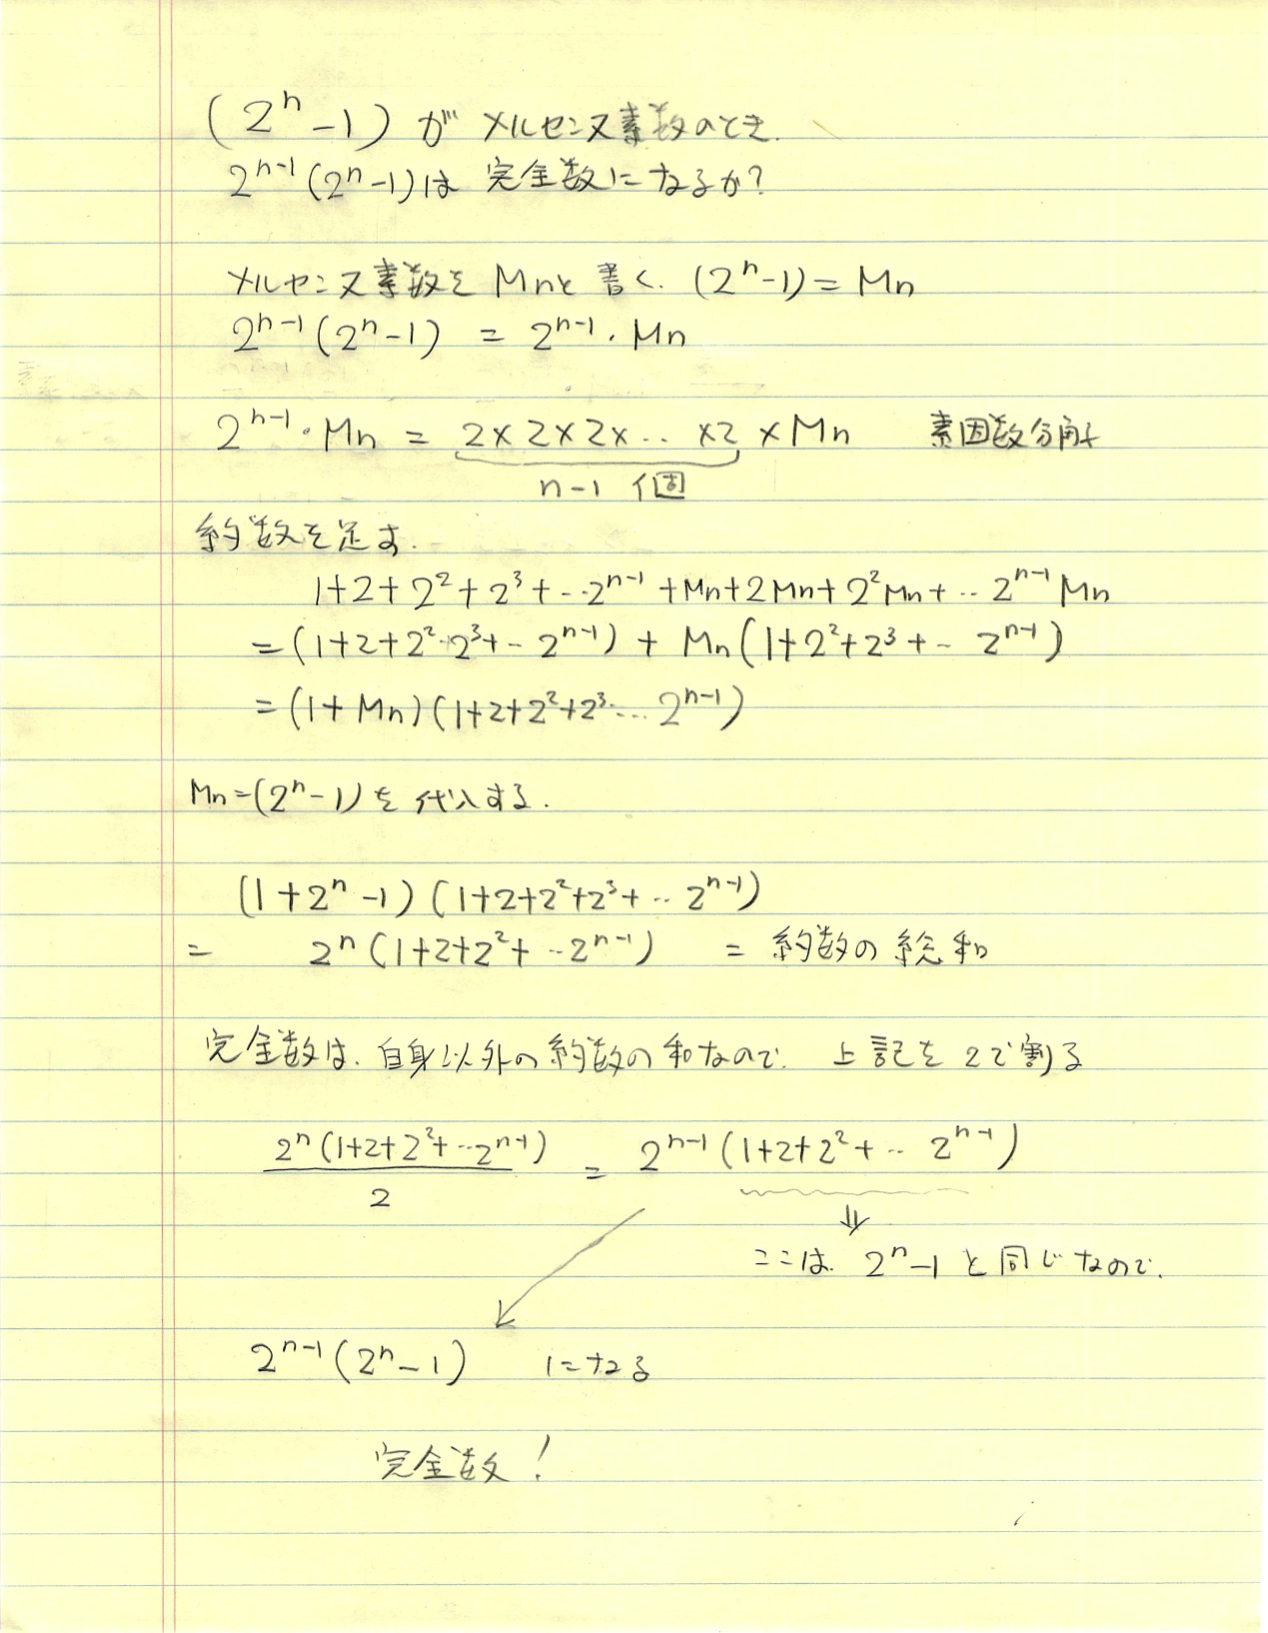 (2ⁿ-1) が メルセンヌ素数のとき.
2ⁿ⁻¹(2ⁿ-1)は 完全数になるか?
メルセンヌ素数を Mnと 書く. (2ⁿ-1) = Mn
2ⁿ⁻¹(2ⁿ-1) = 2ⁿ⁻¹・Mn
2ⁿ⁻¹・Mn = 2×2×2×‥ ×2 ×Mn 素因数分解
n-1 個
約数を足す.
1+2+2²+2³+‥2ⁿ⁻¹+Mn+2Mn+2²Mn+‥2ⁿ⁻¹Mn
=(1+2+2²・2³+‥2ⁿ⁻¹) + Mn(1+2²+2³+‥ 2ⁿ⁻¹)
=(1+Mn)(1+2+2²+2³‥‥2ⁿ⁻¹)
Mn=(2ⁿ-1)を 代入する.
(1+2ⁿ-1)(1+2+2²+2³+‥2ⁿ⁻¹)
= 2ⁿ(1+2+2²+‥2ⁿ⁻¹) = 約数の総和
完全数は. 自身以外の約数の和なので. 上記を2で割る
2ⁿ(1+2+2²+‥2ⁿ⁻¹)/2 = 2ⁿ⁻¹(1+2+2²+‥ 2ⁿ⁻¹)
⇓
ここは. 2ⁿ-1 と同じなので.
2ⁿ⁻¹(2ⁿ-1) になる
完全数!